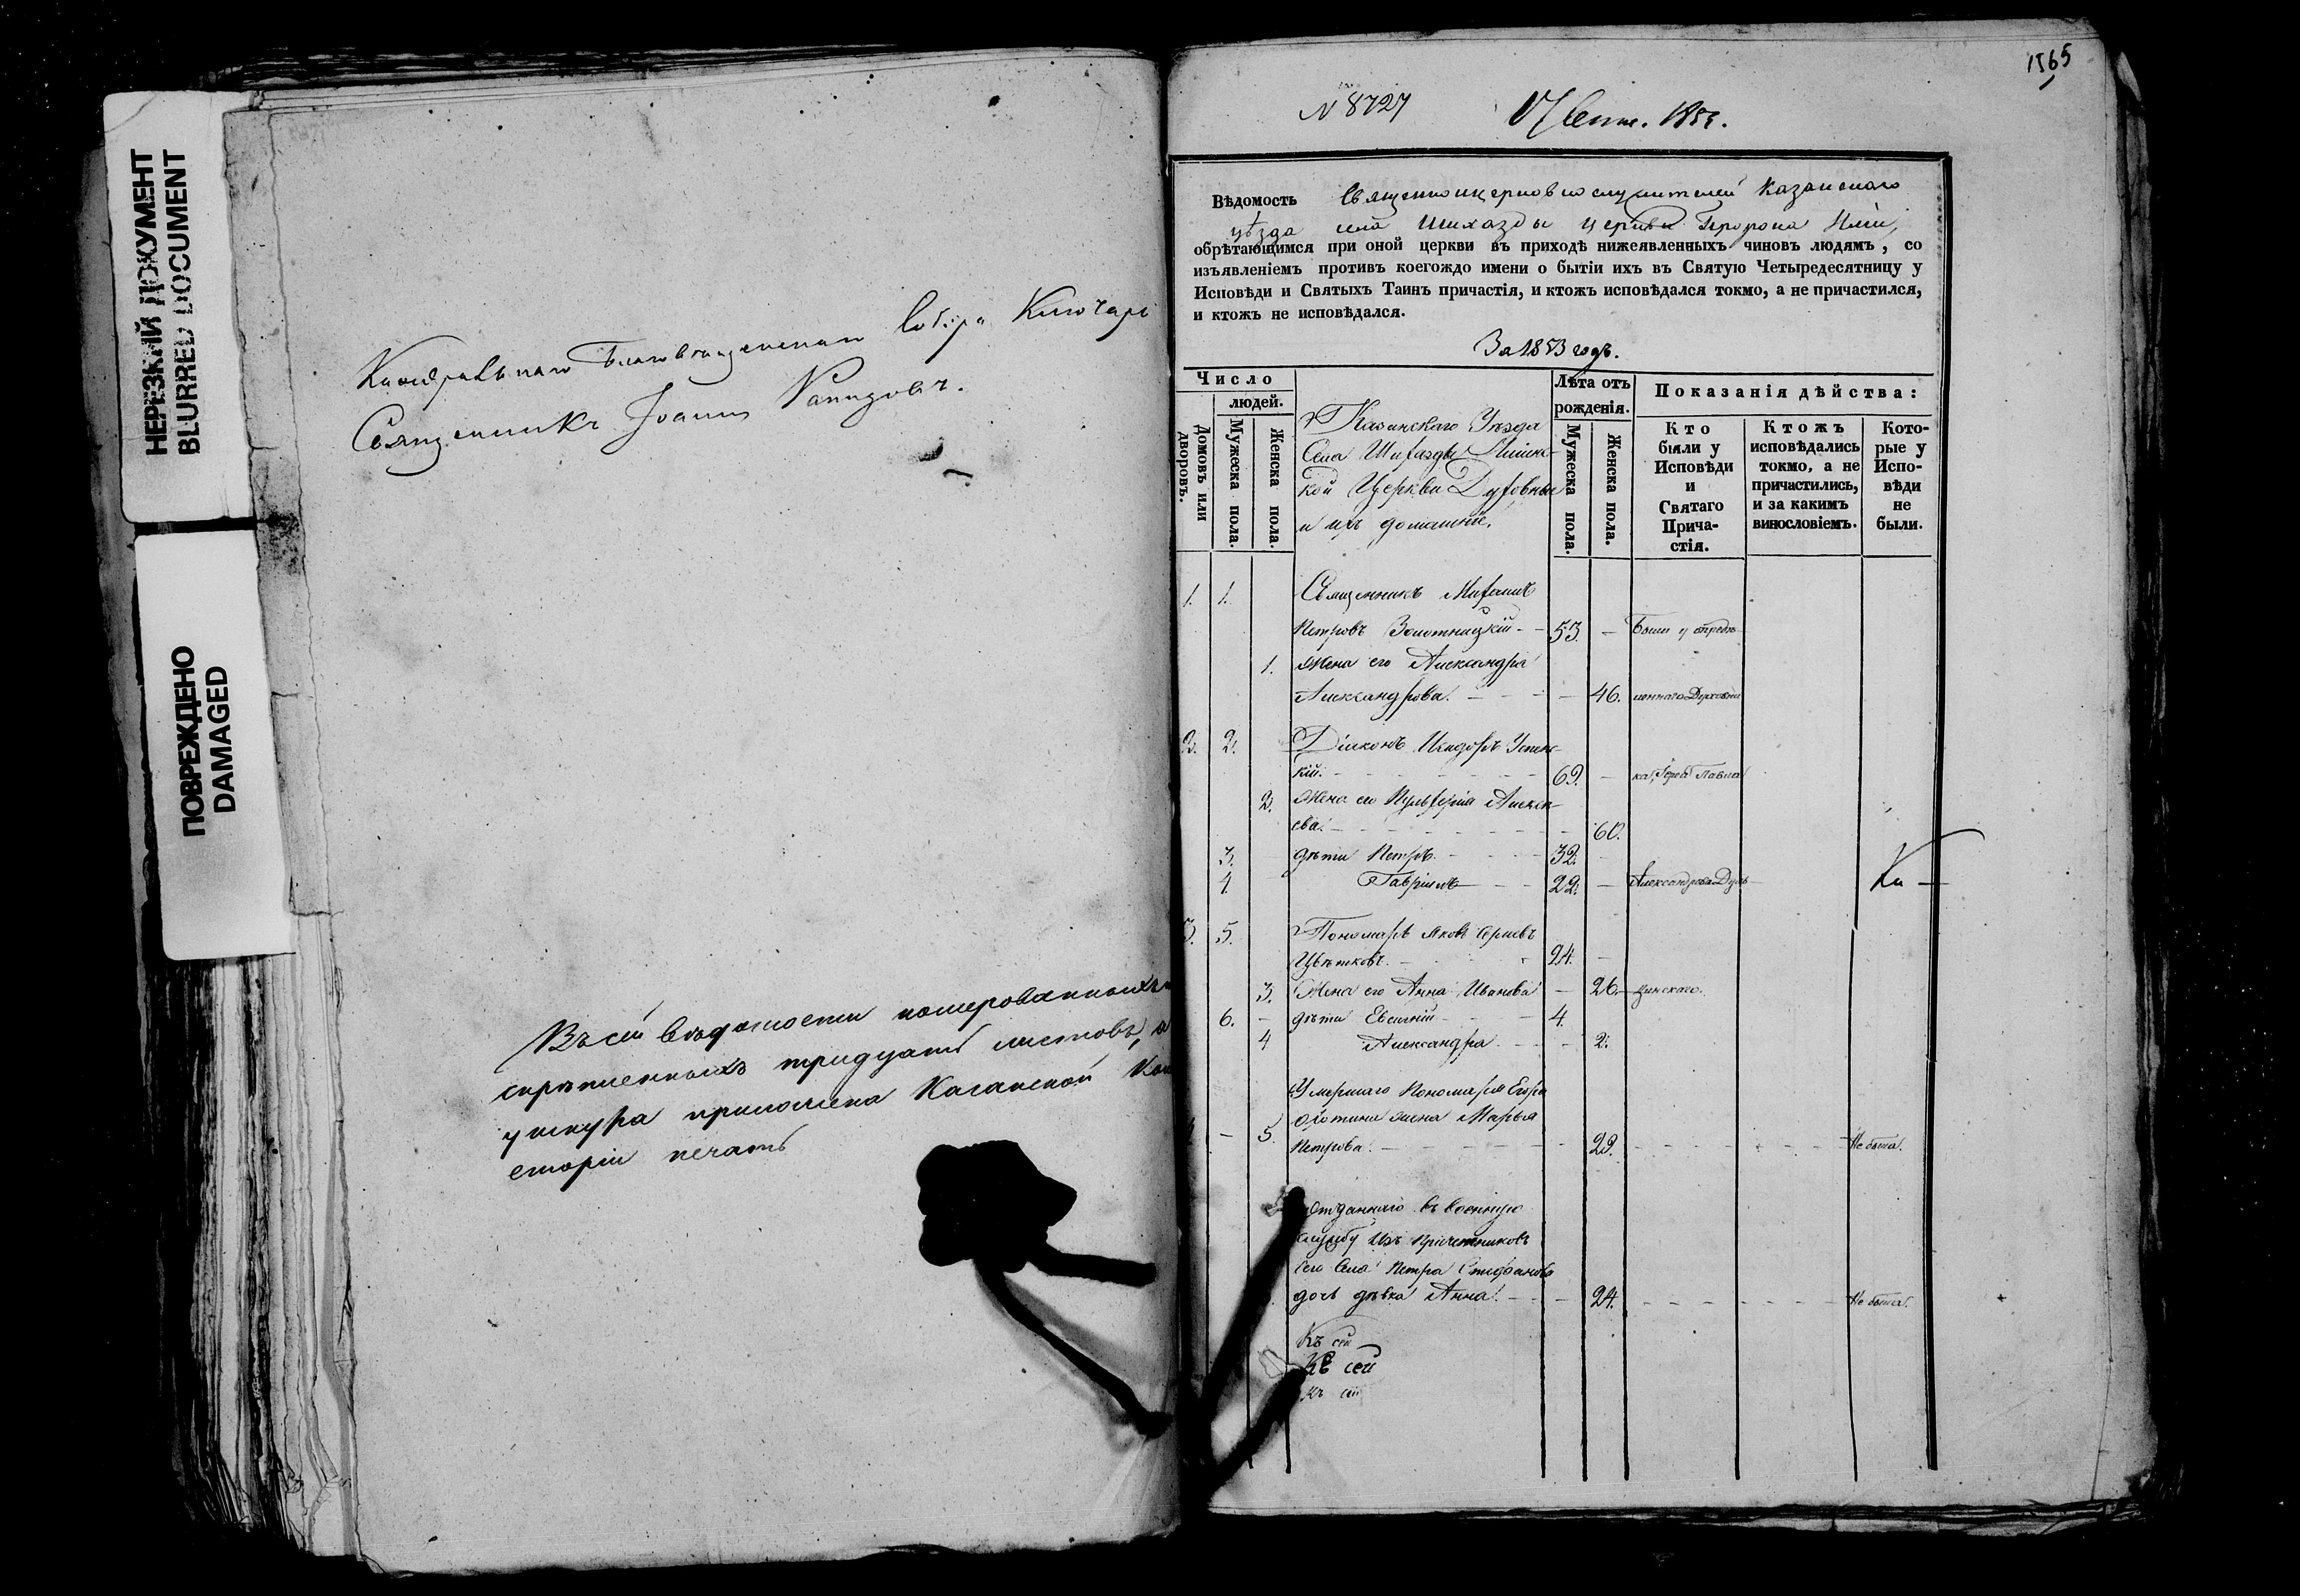 НЕРЕЗКИЙ ДОКУМЕНТ
BLURRED DOCUMENT
ПОВРЕЖДЕНО
DAMAGED
Каѳедральнаго Благовѣщенскаго Собора Ключарь
Священникъ Іоаннъ
Въ сей вѣдомости номерованныхъ и
скрѣпленныхъ тридцать листовъ, а
у шнура приложена Казанской Кон
систоріи печать
1565
N 8727
Сент. 185
Вѣдомость Священноцерковнослужителей Казанскаго
уѣзда села Шихазды церкви Пророка Иліи,
обрѣтающимся при оной церкви въ приходѣ нижеявленныхъ чиновъ людямъ, со
изъявленіемъ противъ коегождо имени о бытіи ихъ въ Святую Четыредесятницу у
Исповѣди и Святыхъ Таинъ причастія, и ктожъ исповѣдался токмо, а не причастился,
и ктожъ не исповѣдался.
За 1853 годъ.
Число
людей.
Домовъ или дворовъ.
Мужеска пола.
Женска пола.
Казанскаго Уѣзда
Села Шихазды Ильинс-
кой Церкви Духовные
и ихъ домашніе.
Лѣта отъ рожденія.
Мужеска пола.
Женска пола.
Показанія дѣйства:
Кто были у Исповѣди и Святаго Прича-стія.
Ктожъ исповѣдались токмо, а не причастились, и за какимъ винословіемъ.
Кото-рые у Испо-вѣди не были.
1. 1. Священникъ Михаилъ
Петровъ Золотницкій - - 53. - Были у опредѣ-
1. Жена его Александра
Александрова. - - - - 46. леннаго Духовни
2. 2. Діаконъ Исидоръ Успенс-
кій. - - - 69. - ка,
2. Жена его Пульхерія Алексѣ-
ева. - - - 60.
3. дѣти Петръ. - - - 32. -
4. Гавріилъ - - - 22. -
3. 5. Пономарь Яковъ
Цвѣтковъ. - - 24. -
3. Жена его Анна Иванова - 26. -
6. - дѣти Евгеній - - - 4.
4 Александра. - - - 2.
Умершаго Пономаря Егора
Охотина жена Марья
- 5. Петрова. - - - 29. - - - Не была.
Отданнаго въ военную
службу изъ причетниковъ
сего села Петра Стефанова
дочь дѣвка Анна. - - - 24. - - - Не была.
Къ сей
Къ сей
Къ сей